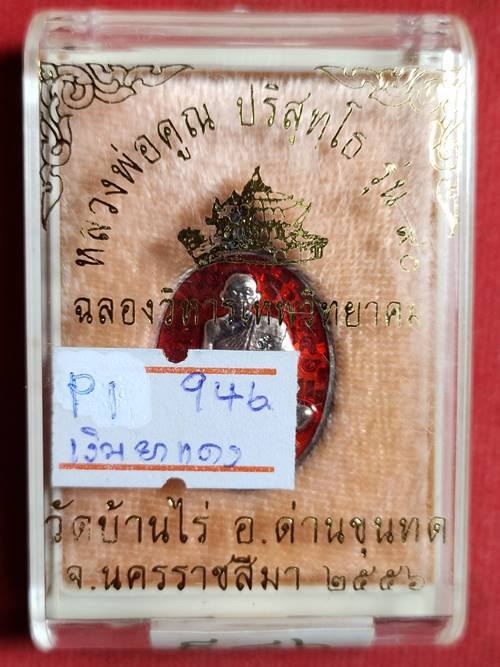 หลวงพ่อคูณ ปริสุทฺโธ รุ่น ๙๐
ฉลองวิหารเทพวิทยาคม
P1 946
เงินยาแดง
วัดบ้านไร่ อ.ด่านขุนทด
จ.นครราชสีมา ๒๕๕๖